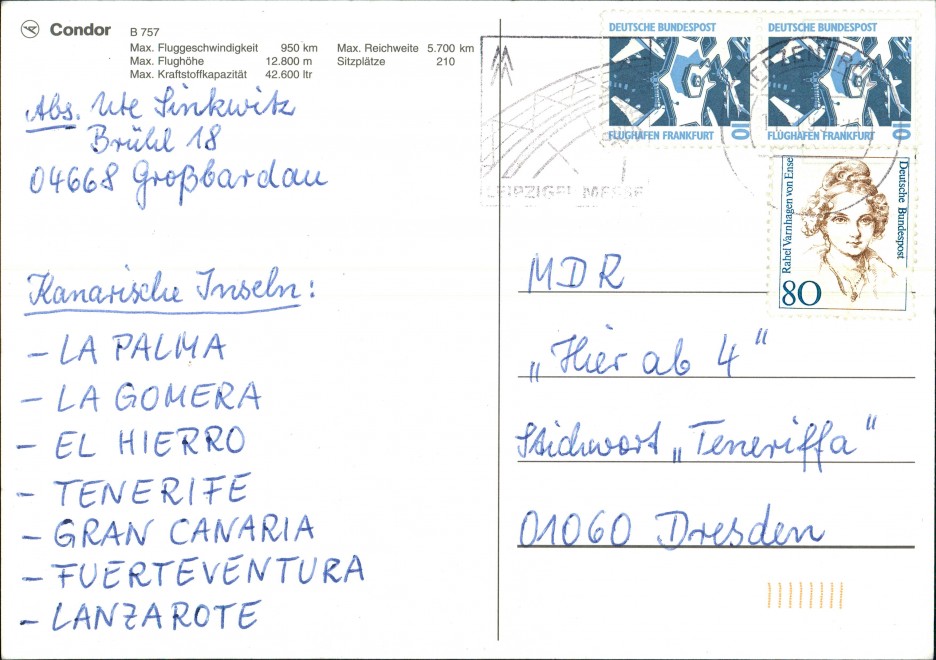 Condor B 757
Max. Fluggeschwindigkeit 950 km Max. Reichweite 5.700 km
Max. Flughöhe 12.800 m Sitzplätze 210
Max. Kraftstoffkapazität 42.600 ltr
Abs. Ute Sinkwitz
Brühl 18
04668 Großbardau
Kanarische Inseln:
- LA PALMA
- LA GOMERA
- EL HIERRO
- TENERIFE
- GRAN CANARIA
- FUERTEVENTURA
- LANZAROTE
DEUTSCHE BUNDESPOST
FLUGHAFEN FRANKFURT 10
DEUTSCHE BUNDESPOST
FLUGHAFEN FRANKFURT 10
LEIPZIGER MESSE
Rahel Varnhagen von Ense
Deutsche Bundespost
80
MDR
„Hier ab 4"
Stichwort „Teneriffa"
01060 Dresden